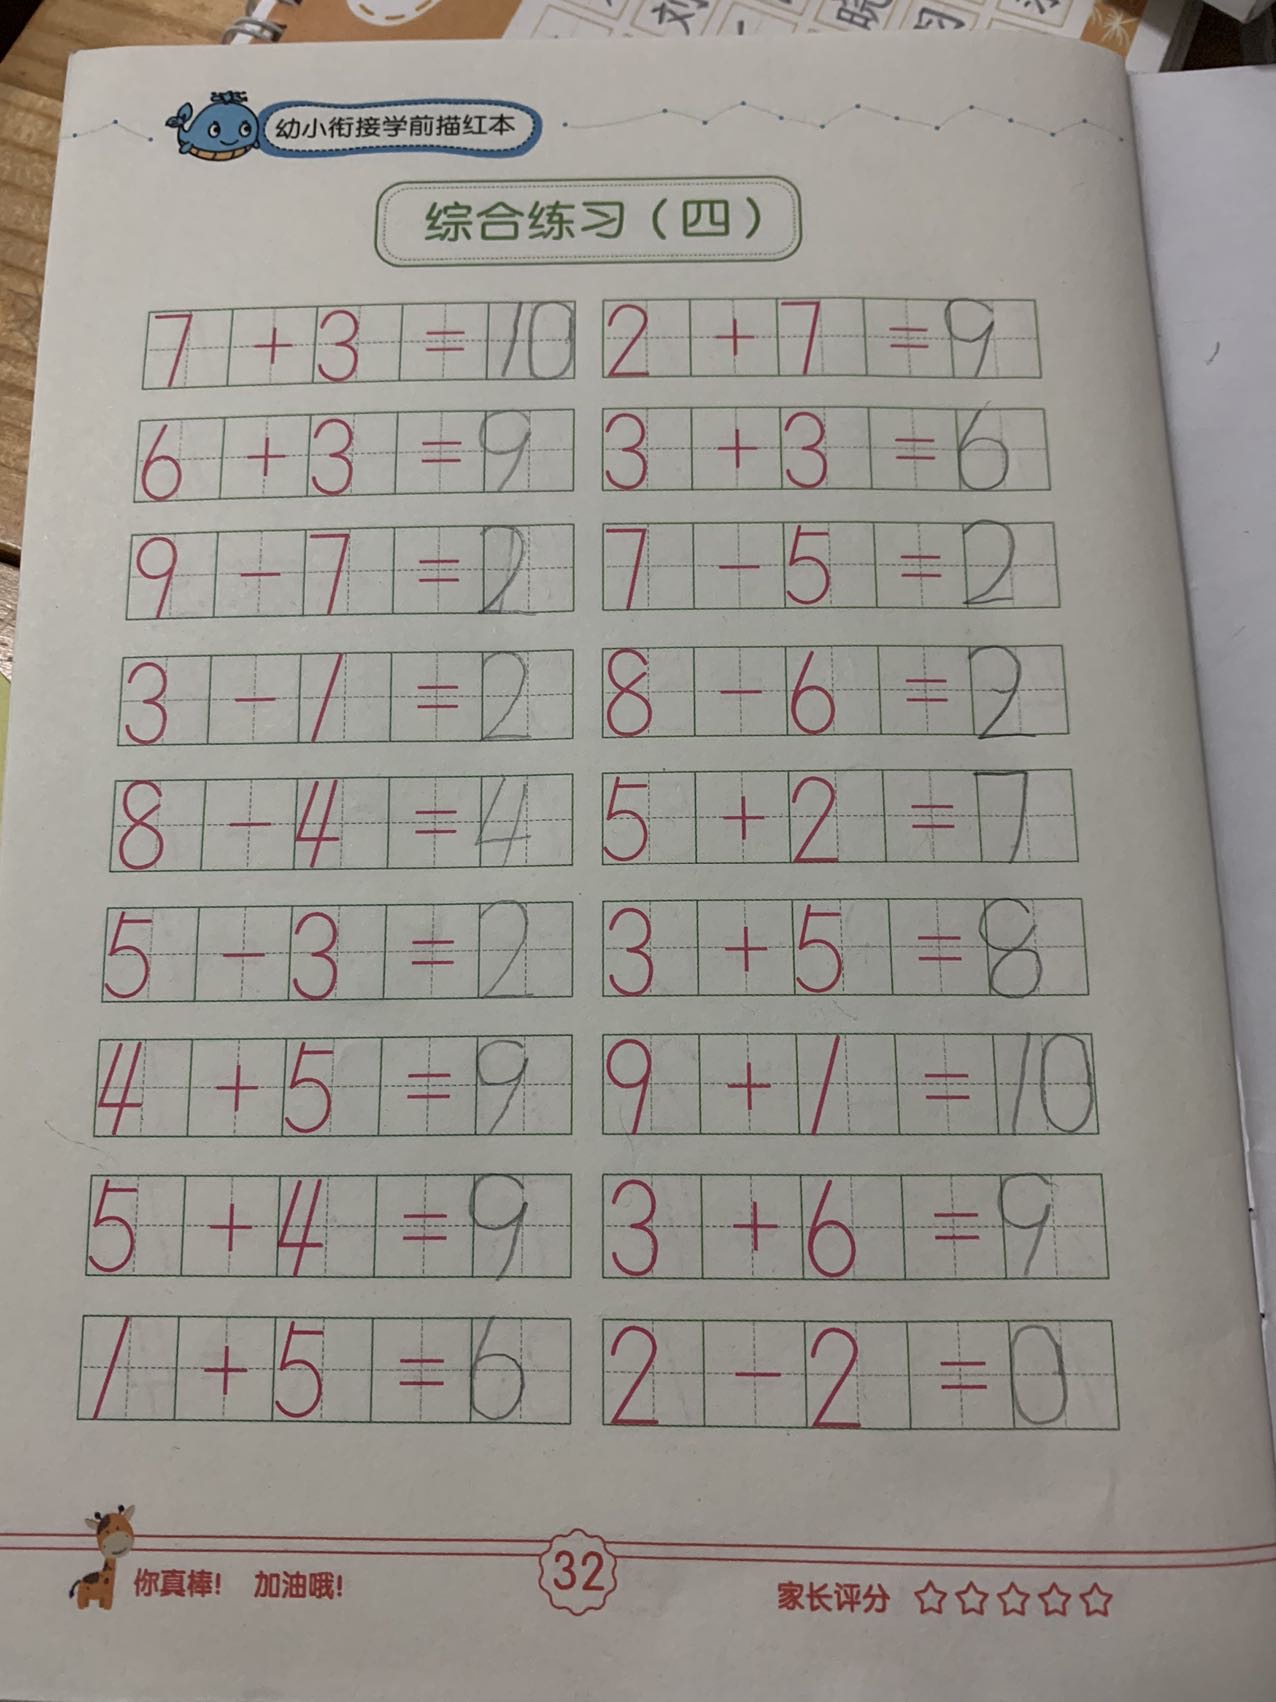 刘 晓 月
幼小衔接学前描红本
综合练习（四）
7+3=10 2+7=9
6+3=9 3+3=6
9-7=2 7-5=2
3-1=2 8-6=2
8-4=4 5+2=7
5-3=2 3+5=8
4+5=9 9+1=10
5+4=9 3+6=9
1+5=6 2-2=0
你真棒! 加油哦! 32 家长评分 ☆☆☆☆☆